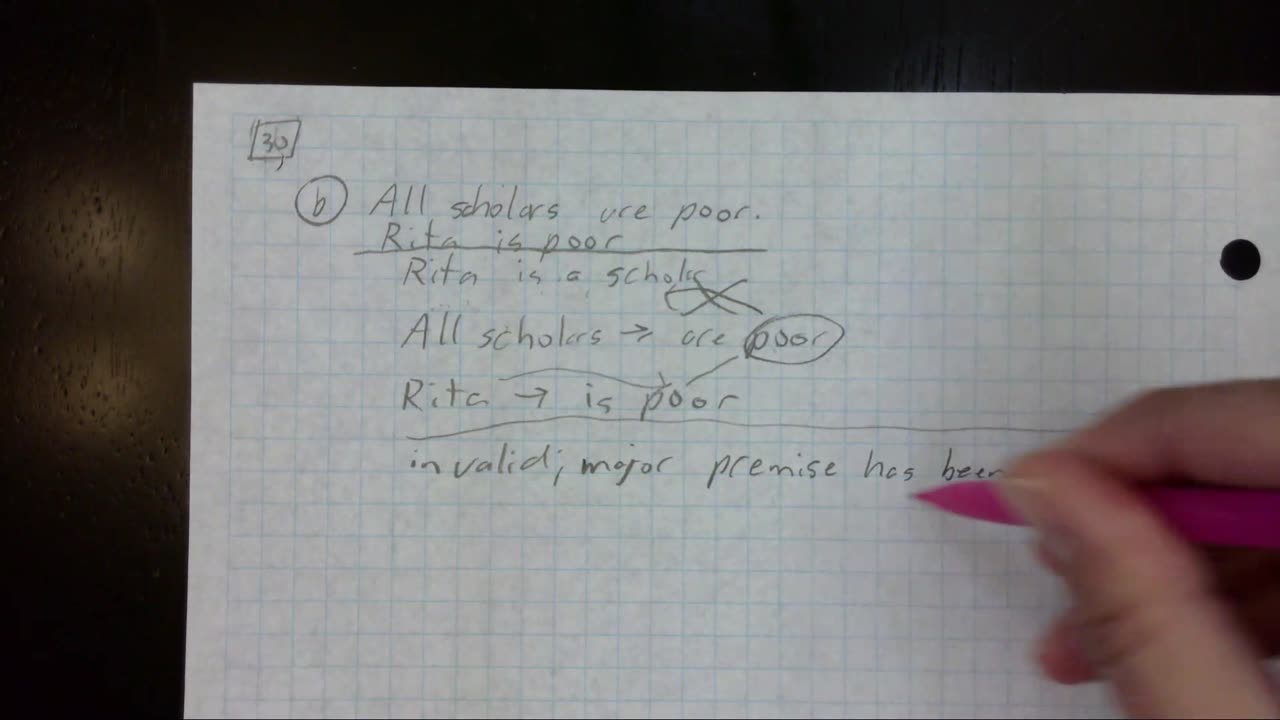 30
b All scholars are poor.
Rita is poor
Rita is a scholar
All scholars → are poor
Rita → is poor
invalid; major premise has been